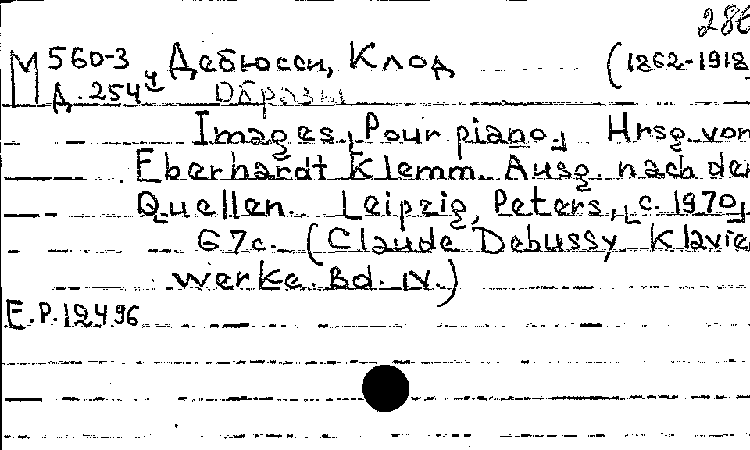 286
М 560-3 Дебюсси, Клод (1862-1918
Д. 254 ч Образы
Images, Pour piano, Hrsg. von
Eberhardt Klemm. Ausg. nach der
Quellen. Leipzig, Peters, c. 1970,
67c. (Claude Debussy Klavie
werke. Bd. IV.)
E.P. 12496